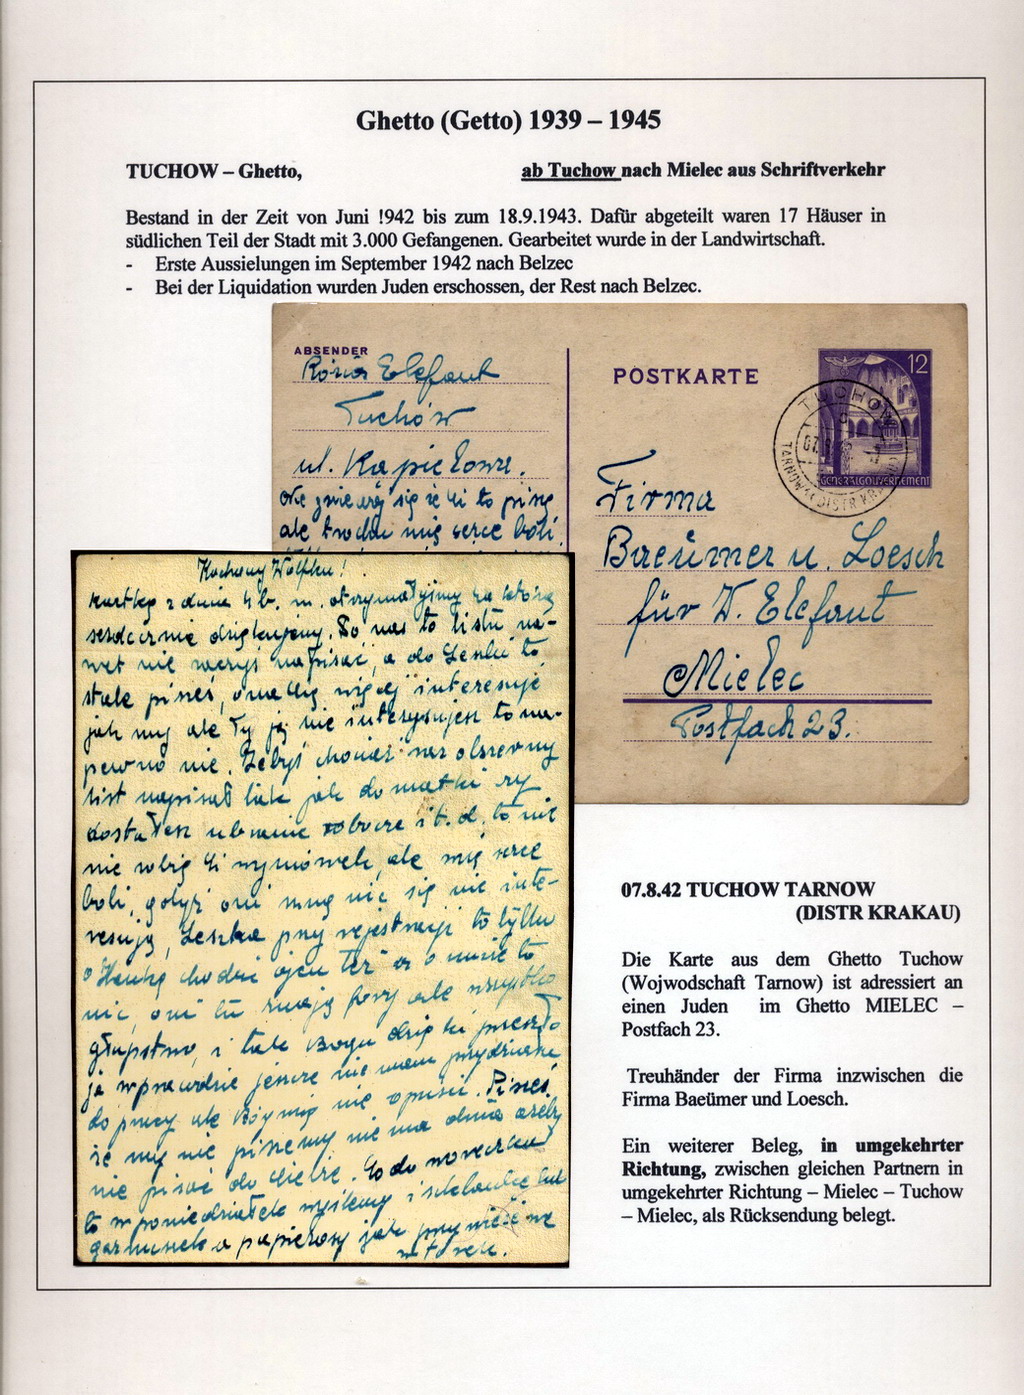 Ghetto (Getto) 1939 – 1945
TUCHOW – Ghetto, ab Tuchow nach Mielec aus Schriftverkehr
Bestand in der Zeit von Juni !942 bis zum 18.9.1943. Dafür abgeteilt waren 17 Häuser in
südlichen Teil der Stadt mit 3.000 Gefangenen. Gearbeitet wurde in der Landwirtschaft.
- Erste Aussielungen im September 1942 nach Belzec
- Bei der Liquidation wurden Juden erschossen, der Rest nach Belzec.
ABSENDER
Rózia Elefant
Tuchów
ul. Kąpielowa.
Nie gniewaj się że Ci to piszę
ale trochę mię serce boli.
POSTKARTE
12
GENERALGOUVERNEMENT
TUCHOW
TARNOW (DISTR KRAKAU)
Firma
Baeümer u. Loesch
für W. Elefant
Mielec
Postfach 23.
Kochany Wolfku!
kartkę z dnia 4 b. m. otrzymałyśmy za którą
serdecznie dziękujemy. Do nas to listu na-
wet nie raczyś napisać, a do Leslu to
stale pisześ, ona Cię więcej interesuje
jak my ale Ty ją nie interesujesz to na-
pewno nie. Żebyś chociaż nas obszerny
list napisał tak jak do matki czy
dostałeś ubranie robocze i t. d. to nie
nie robię Ci wymówek, ale mię serce
boli, gdyż oni mną nic się nie inte-
resują, przy rejestracji to tylko
o Hankę chodzi ojcu też a o mnie to
nic, oni tu mają ale wszystko
głupstwo, i tak Bogu dzięki przeszło
ja wprawdzie jeszcze nie mam przydziału
do pracy ale Bóg mię nie opuści. Pisześ
że my nie piszemy nie ma dnia ażeby
nie pisać do Ciebie. Co do
to w poniedziałek wyślemy i
garnuszek a papierosy jak przyniesie we
wtorek.
07.8.42 TUCHOW TARNOW
(DISTR KRAKAU)
Die Karte aus dem Ghetto Tuchow
(Wojwodschaft Tarnow) ist adressiert an
einen Juden im Ghetto MIELEC –
Postfach 23.
Treuhänder der Firma inzwischen die
Firma Baeümer und Loesch.
Ein weiterer Beleg, in umgekehrter
Richtung, zwischen gleichen Partnern in
umgekehrter Richtung – Mielec – Tuchow
– Mielec, als Rücksendung belegt.